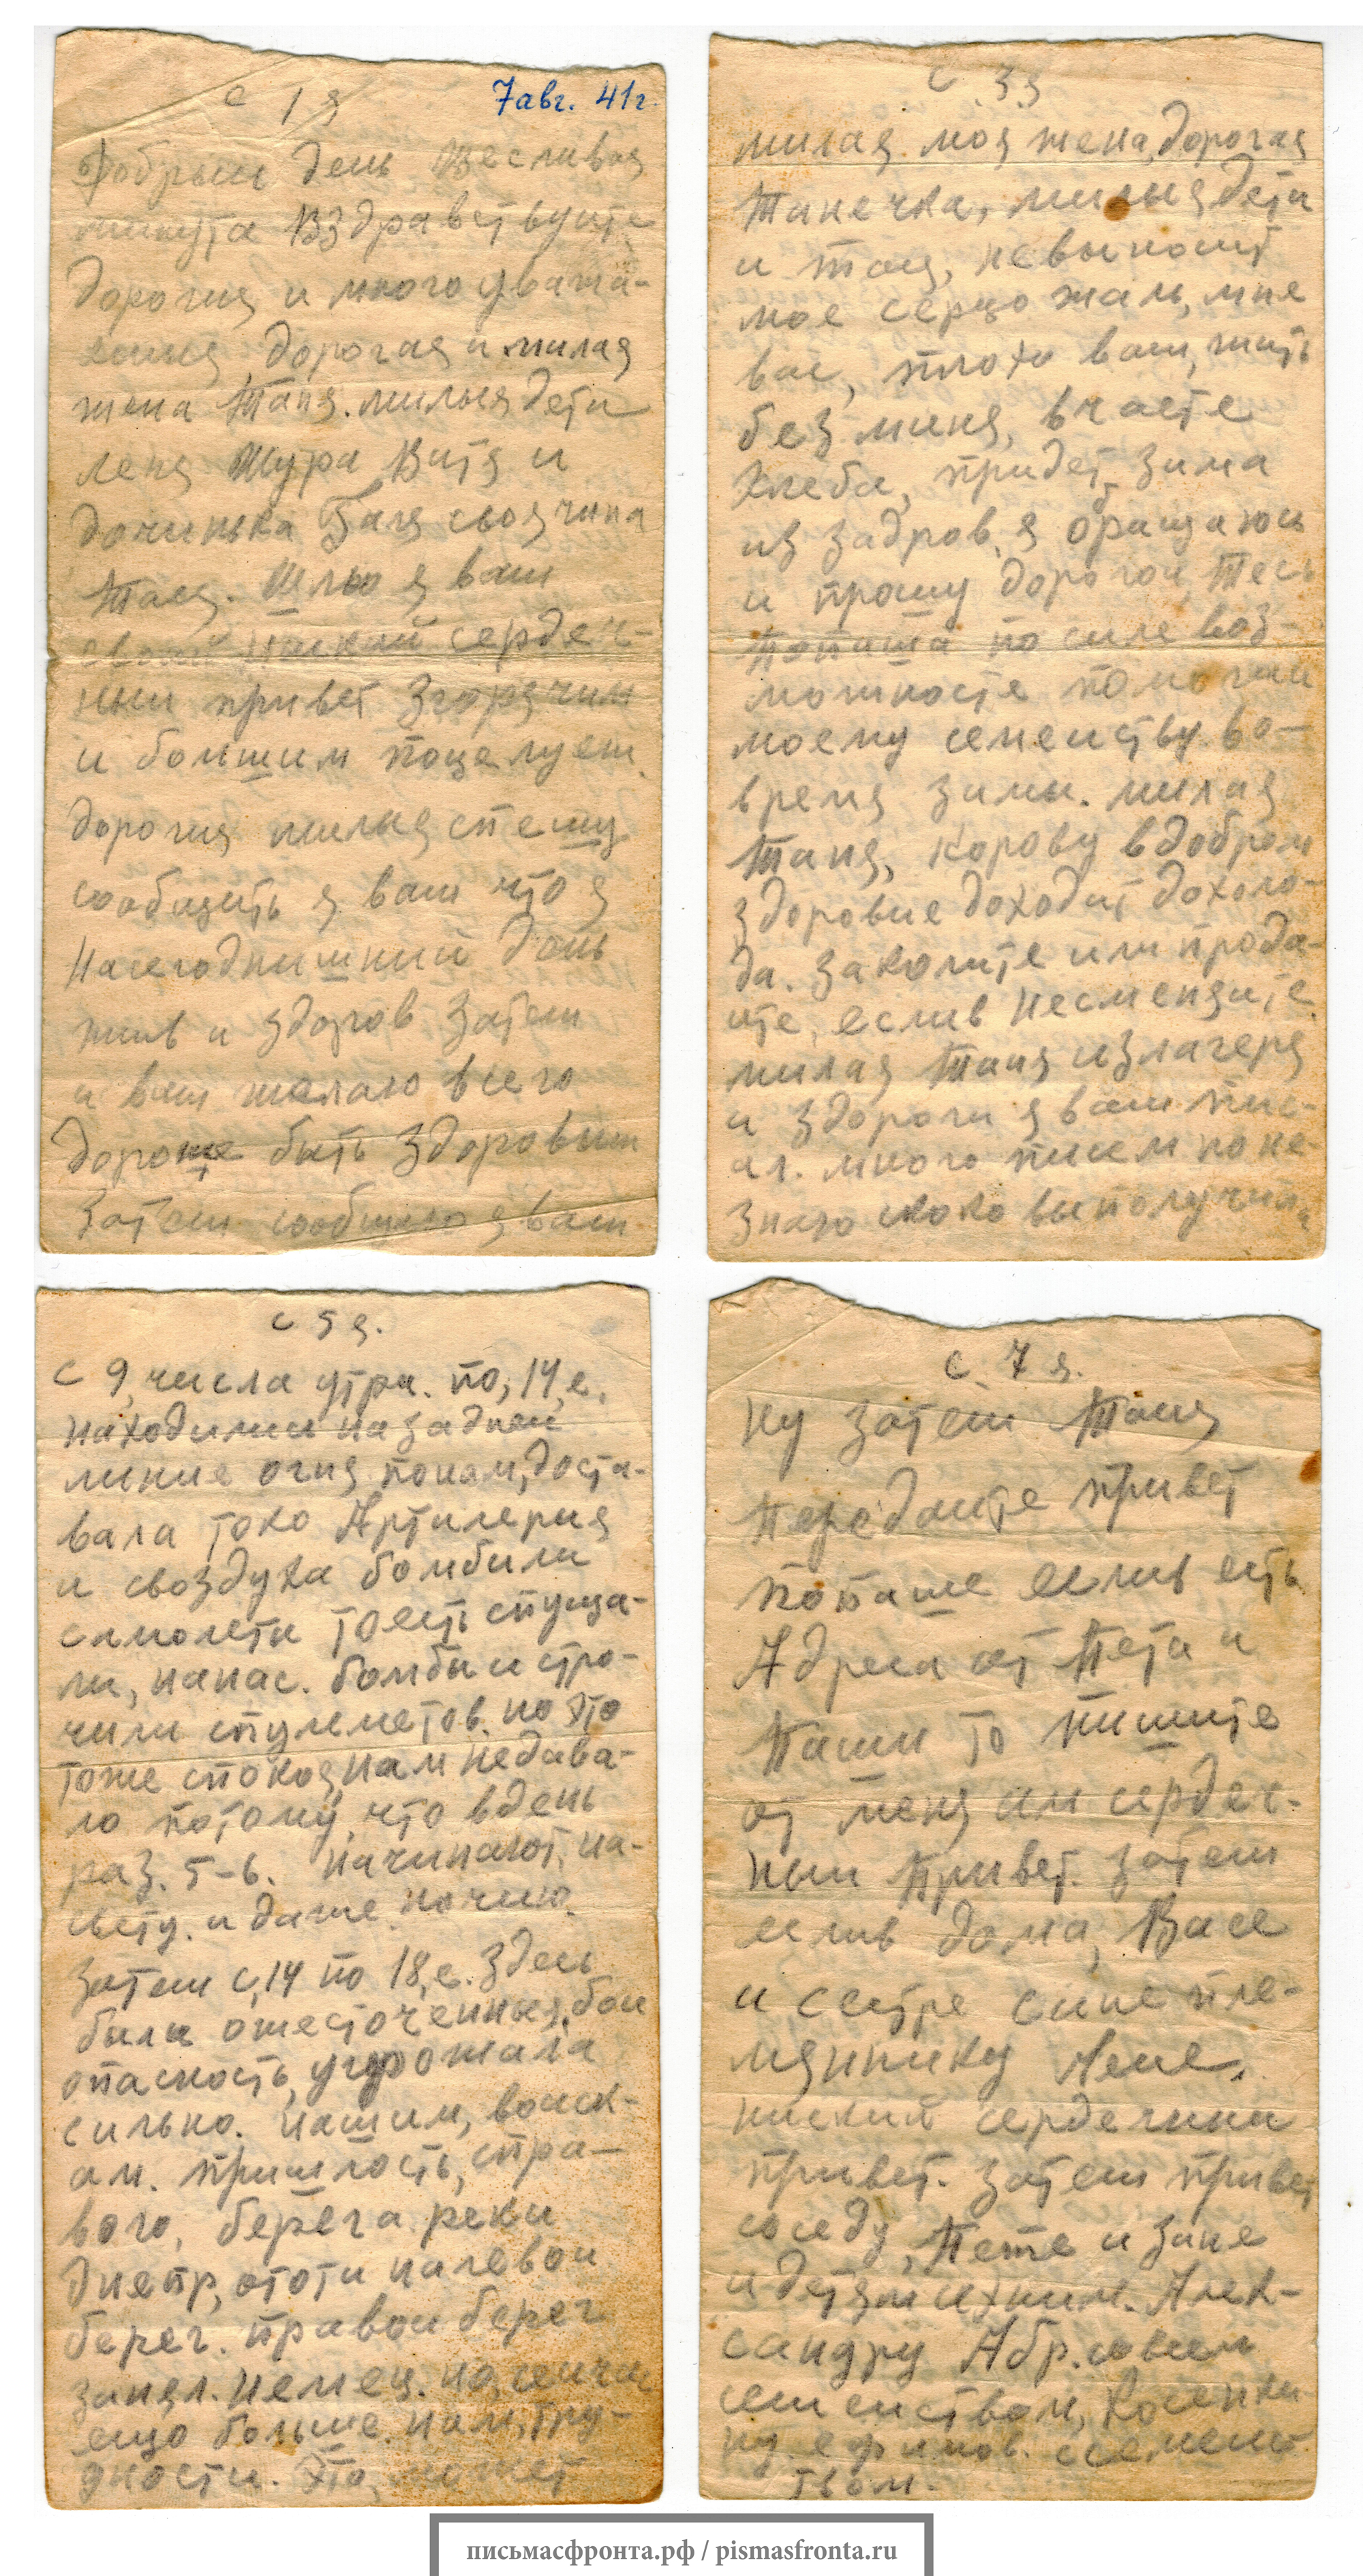 с 1 я
7 авг. 41 г.
Добрыи день щесливоя
минута Вздраветвуите
дорогия и много уважа-
емыя дорогая и милая
жена Таня. милыя дети
леня Шура Витя и
дочинька Галя своячина
Тася. Шлю я вам
свои ниский сердеч-
ныи привет згорячим
и большим поцелуем.
дорогия милыя спешу
сообщить я вам что я
Насегоднишний день
жив и здоров Затем
и вам желаю всего
дороже быть здоровым
Затем сообщаю я вам
с 3 я
милая моя жена, дорогая
Танечка, милыя дети
и Тася, невыносит
мое серцо жаль, мне
вас, плохо вам, жить
без миня, вчасте
хлеба, придет зима
из задров, я обращаюсь
и прошу дорогои Тесь
Попаша по силе воз-
можносте помогаи
моему семеиству во-
время зимы. милая
Таня, корову вдобром
здоровие доходит дохоло-
да. Заколите или прода-
ите, еслив несменяите.
милая Таня излагеря
и здороги я вам пис-
ал. много писем но не-
знаю скоко выполучили
с 5 я.
с 9, числа утра. по, 14, е.
находимси назаднеи
линие огня понам, доста-
вала токо Артилерия
и своздуха бомбили
самолети тоесть спуща-
ли, нанас. бомбы и стро-
чили спулеметов. но это
тоже спокоя нам недава-
ло потому, что вдень
раз. 5-6. начинают, на-
свету. и даже. ночию.
Затем с, 14 по 18, е. здесь
были ожесточенныя, бои
опасность, угрожала
сильно. нашим, воиск-
ам. пришлость, спра-
вого, берега реки
Днепр, ототи налевои
берег. правои берег
занял. немец. но сеичас
ещо больше. нам, тру-
дности. Это, может
с 7 я.
Ну затем Таня
Передаите привет
попаше еслив есть
Адреса от Пети и
Паши то пишите
от меня им сердеч-
ныи привет. Затем
еслив дома, Васе
и сестре сине пле-
мяннику Лене,
ниский сердечныи
привет. Затем привет
соседу, Пете и Зине
и детям ихним. Алек-
сандру Абр. совсем
семеиством, Косенки
ну ефимов. ссемеис
твом.
письмасфронта.рф / pismasfronta.ru